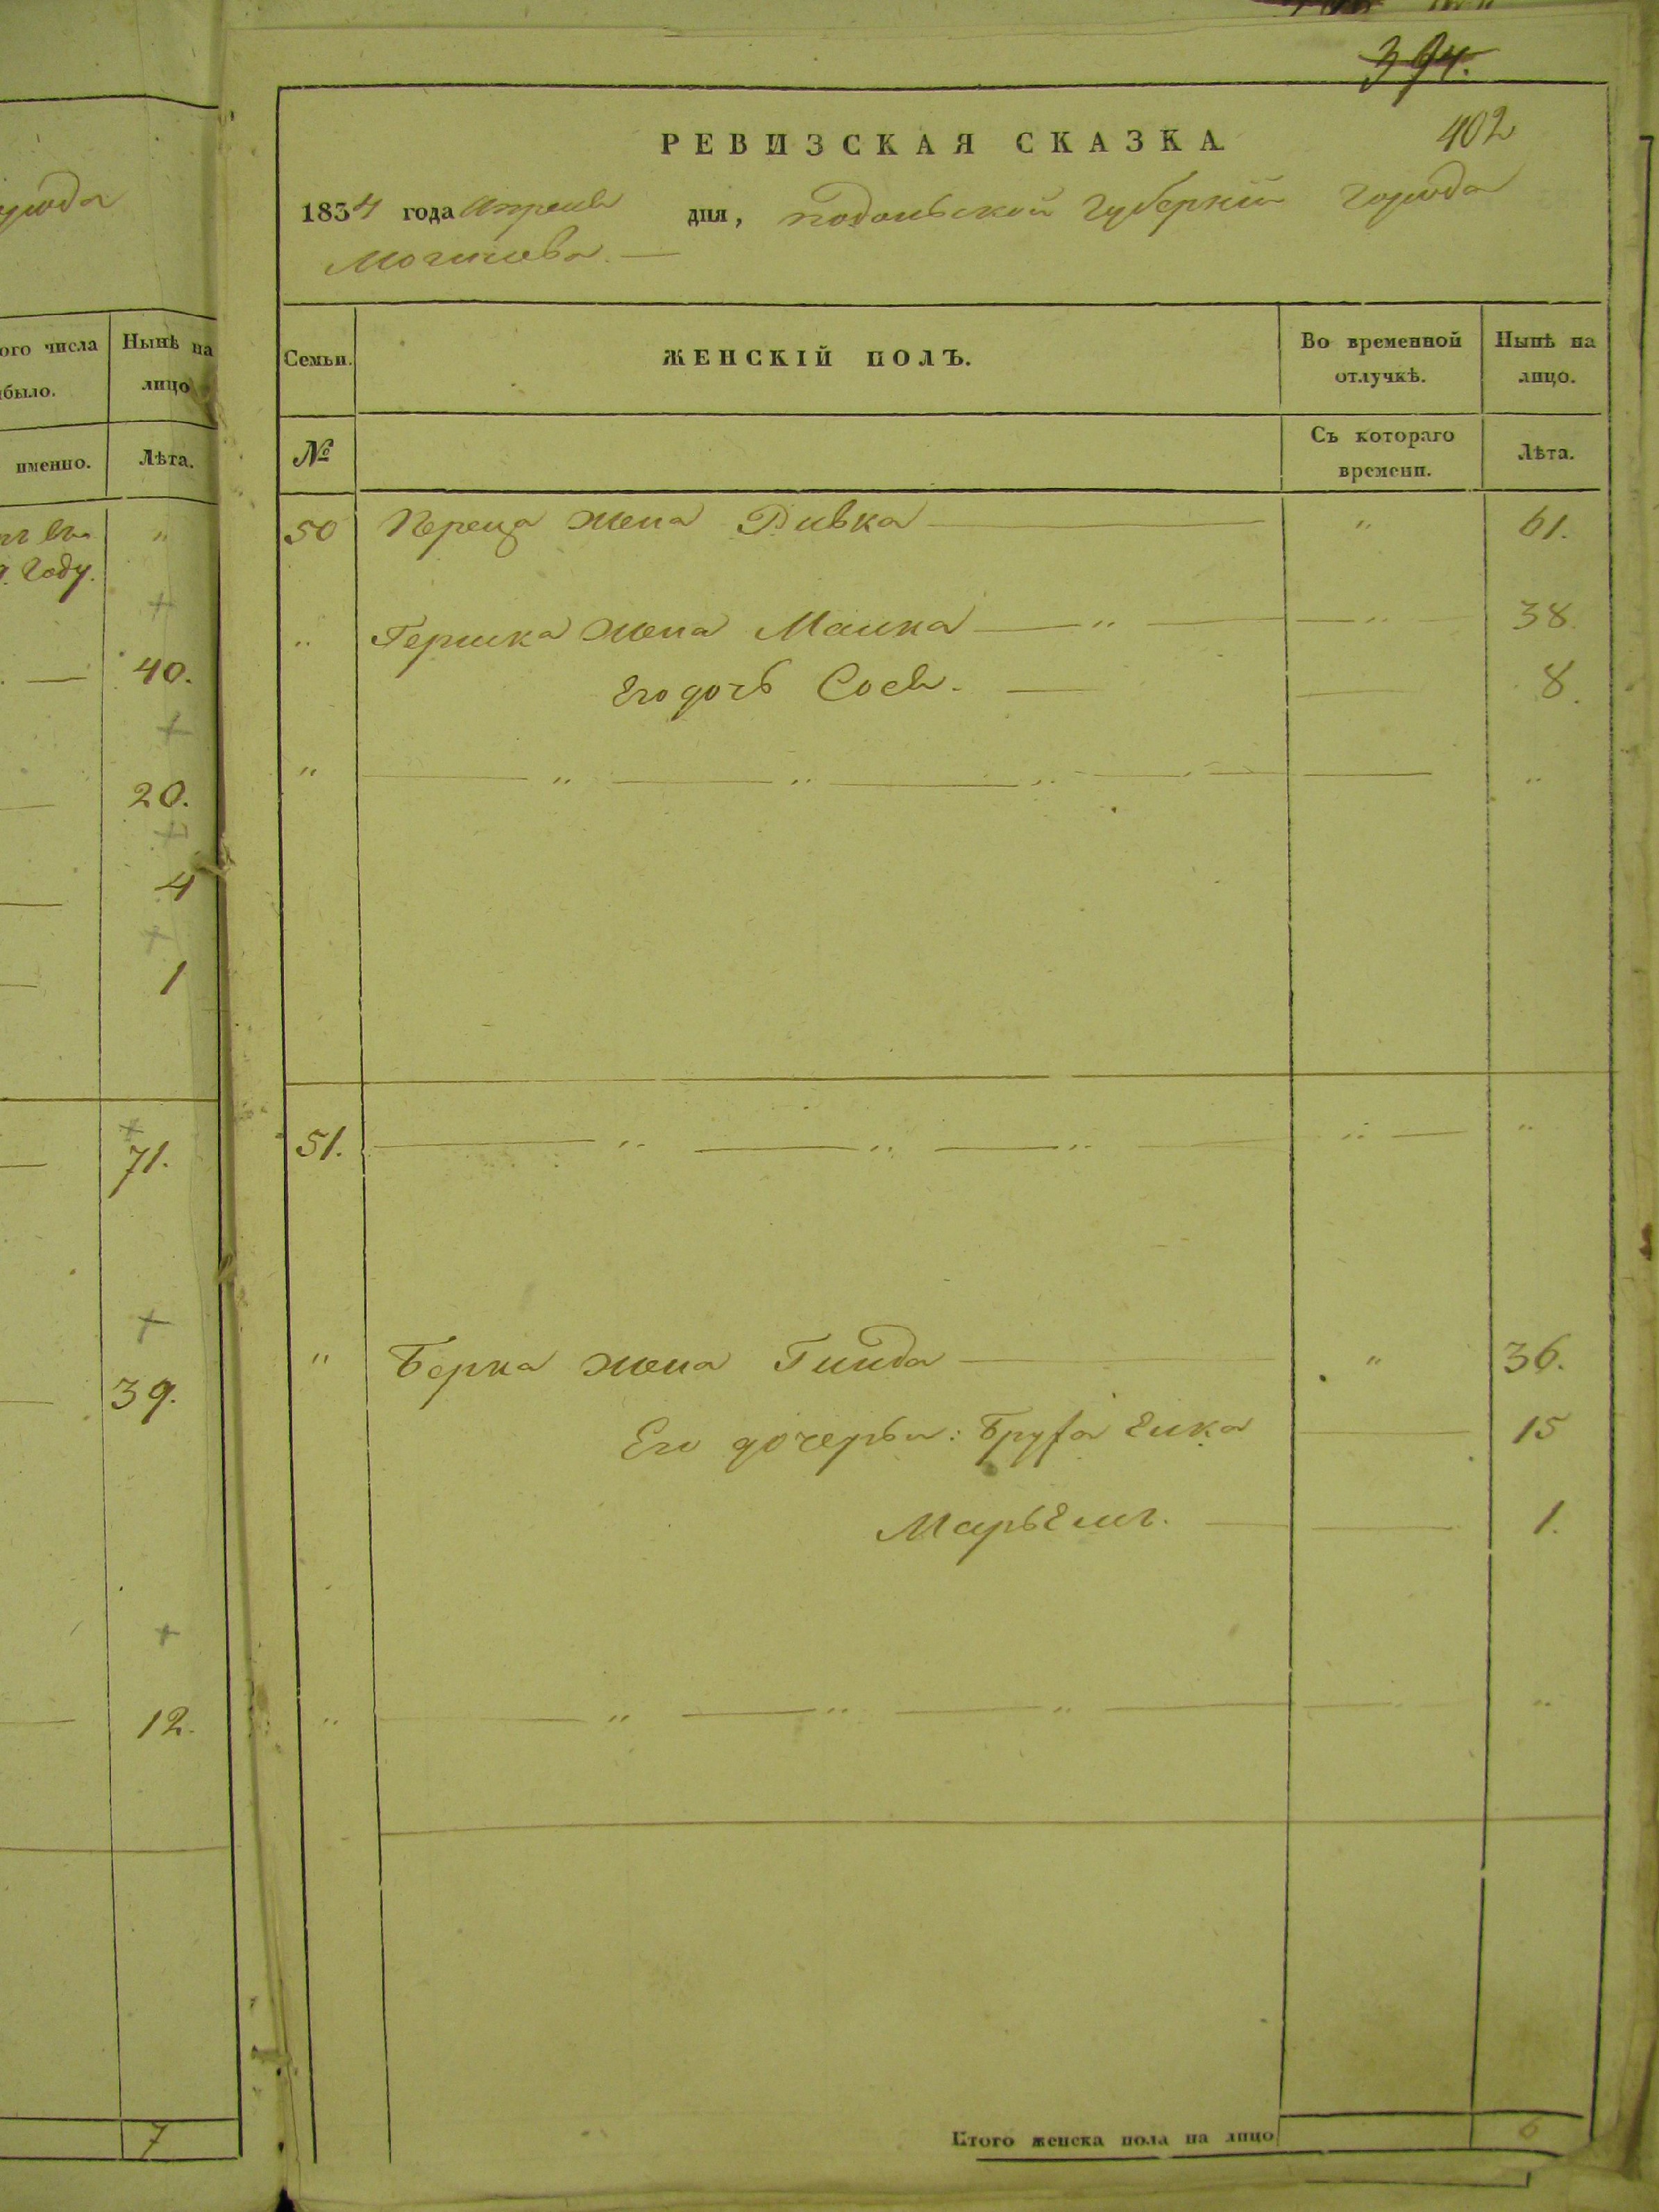 394.
402
РЕВИЗСКАЯ СКАЗКА
1834 года Апреля дня, Подольской Губерніи города
Могилева.
Семьи. ЖЕНСКІЙ ПОЛЪ. Во временной отлучкѣ. Нынѣ на лицо.
№ Съ котораго времени. Лѣта.
50 Переца жена Ривка — " 61.
" Гершка жена Малка — " — " — 38.
Его дочь Сося. — 8.
" — " — " — " — "
51. — " — " — " — " — "
" Берка жена Гинда — " 36.
Его дочерьи: Бруха Елка — 15
Марьемъ. — 1.
" — " — " — " — "
Итого женска пола на лицо 6
города
ого числа Нынѣ на
было. лицо
именно. Лѣта.
"
Году.
40.
20.
4
1
71.
39.
12.
7